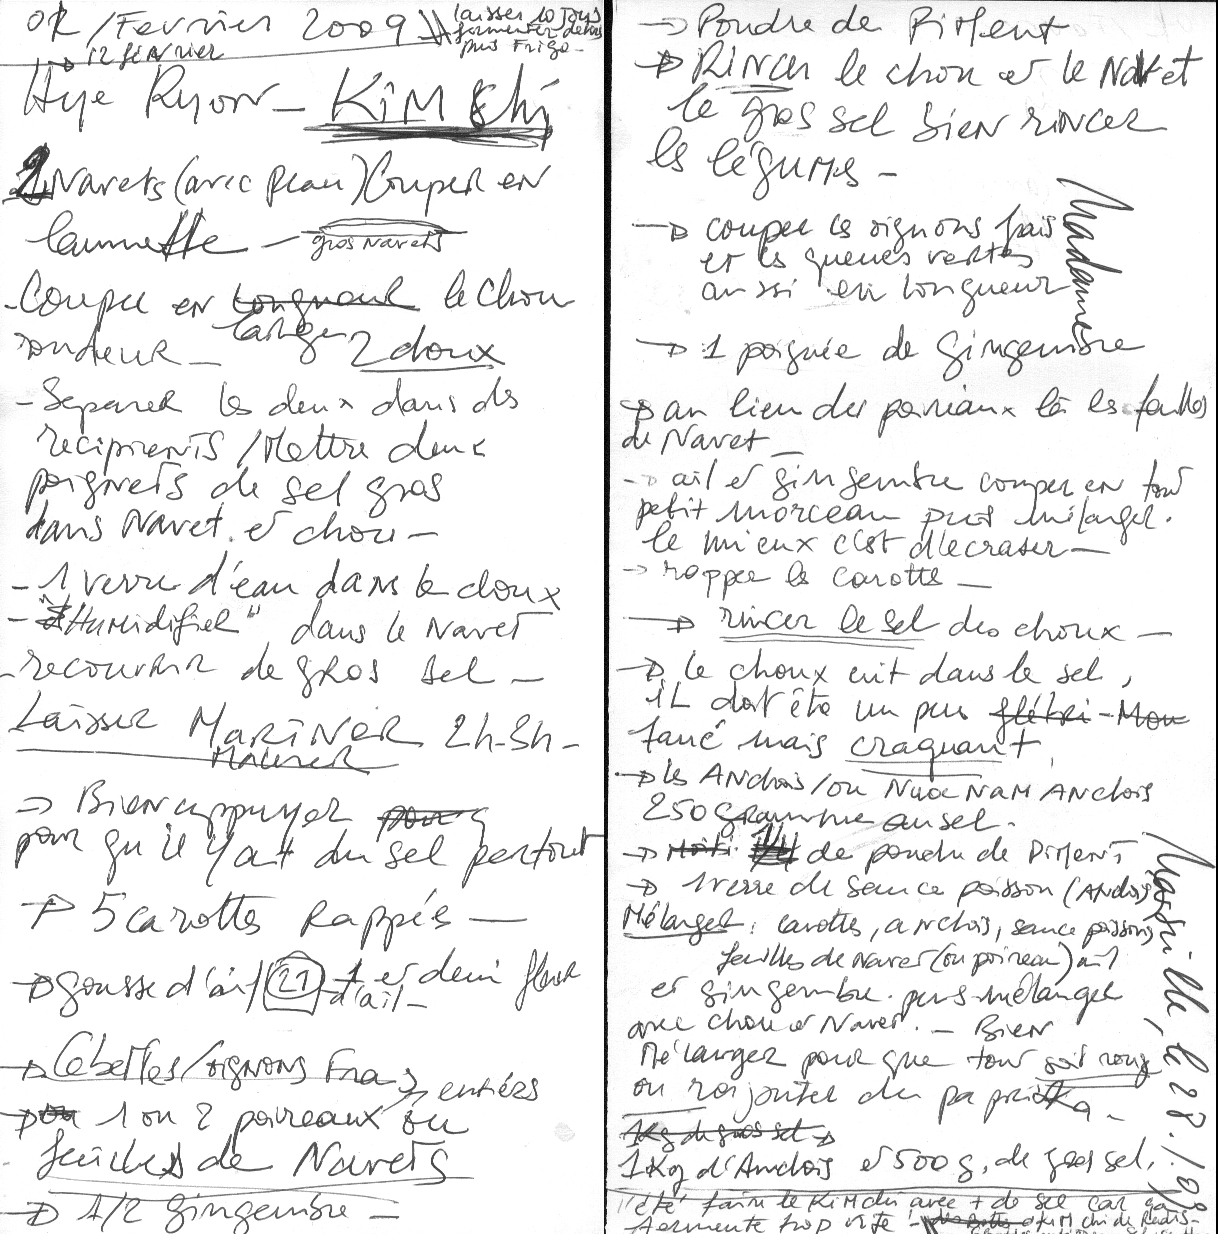 OK/Fevrier 2009
laisser 10 jours
fermenter dehors
puis Frigo -
12 février
Hye Ryon - KiMchi
2 Navets (avec peau) Couper en
lamelle -
gros Navets
- Coupee en longueur le chou
largeur
rondeur - 2 choux
- Separer les deux dans des
recipients / Mettre deux
poignets de sel gros
dans Navet et chou -
- 1 verre d'eau dans le choux
- "Humidifier" dans le Navet
- recouvrir de gros sel -
Laisser MARiNER 2h-3h -
Macerer
→ Bien appuyer pour
pour qu'il y ait du sel partout
→ 5 carottes Rappés -
→ gousse d'ail / 21 1 et demi fleur
d'ail -
→ Cebettes/oignons Frais
entiers
→ ou 1 ou 2 poireaux ou
feuilles de Navets
→ 1/2 Gingembre -
→ Poudre de PiMent
→ Rincer le chou et le Navet
le gros sel bien rincer
les légumes -
→ coupee les oignons frais
et les queues vertes
aussi en longueur
Madame
→ 1 poignée de Gingembre
→ au lieu des poireaux là les feuilles
de Navet -
→ ail et gingembre couper en tout
petit morceau puis mélanger.
le mieux c'est d'lecraser -
→ rappee les carotte -
→ rincer le sel des choux -
→ le choux cuit dans le sel,
iL doit être un peu flétri - Mou
fané mais craquant,
→ les ANchois/ou Nuoc NaM ANchois
250 Grammme au sel.
→ Moitié 1/4 de poudre de PiMent
→ 1 verre de sauce poisson (ANchois)
Mélanger : carottes, anchois, sauce poissons,
feuilles de Navet (ou poireau) ail
et gingembre. puis mélanger
avec chou et Navet. - Bien
Mélanger pour que tout soit rouge
ou rajouter du paprika -
1kg de gros sel →
1kg d'Anchois et 500g. de gros sel.
Marseille, le 28.
l'été faire le KiMchi avec + de sel car ça
fermente trop vite ! KiMchi de Radis -